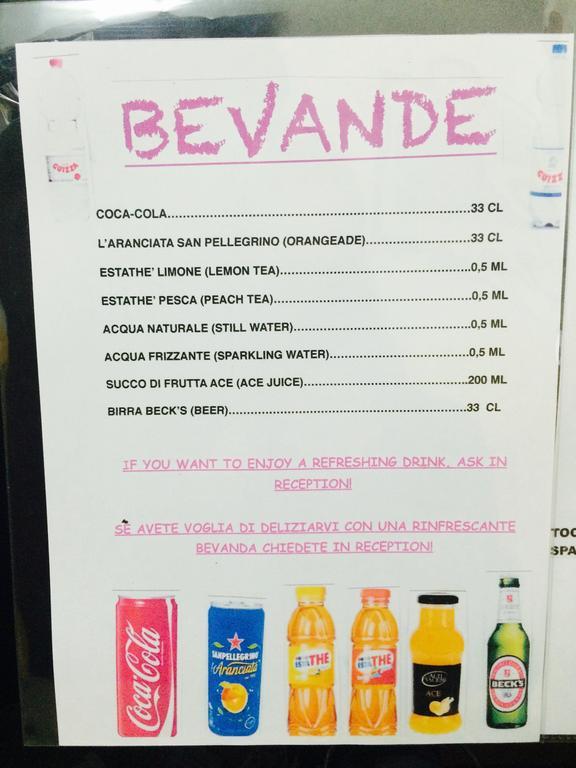 BEVANDE
COCA-COLA..........33 CL
L'ARANCIATA SAN PELLEGRINO (ORANGEADE)..........33 CL
ESTATHE' LIMONE (LEMON TEA)..........0,5 ML
ESTATHE' PESCA (PEACH TEA)..........0,5 ML
ACQUA NATURALE (STILL WATER)..........0,5 ML
ACQUA FRIZZANTE (SPARKLING WATER)..........0,5 ML
SUCCO DI FRUTTA ACE (ACE JUICE)..........200 ML
BIRRA BECK'S (BEER)..........33 CL
IF YOU WANT TO ENJOY A REFRESHING DRINK, ASK IN
RECEPTION!
SE AVETE VOGLIA DI DELIZIARVI CON UNA RINFRESCANTE
BEVANDA CHIEDETE IN RECEPTION!
Coca-Cola
SANPELLEGRINO
Aranciata
ESTATHÉ
ESTATHÉ
ACE
BECK'S
TOC
SPA